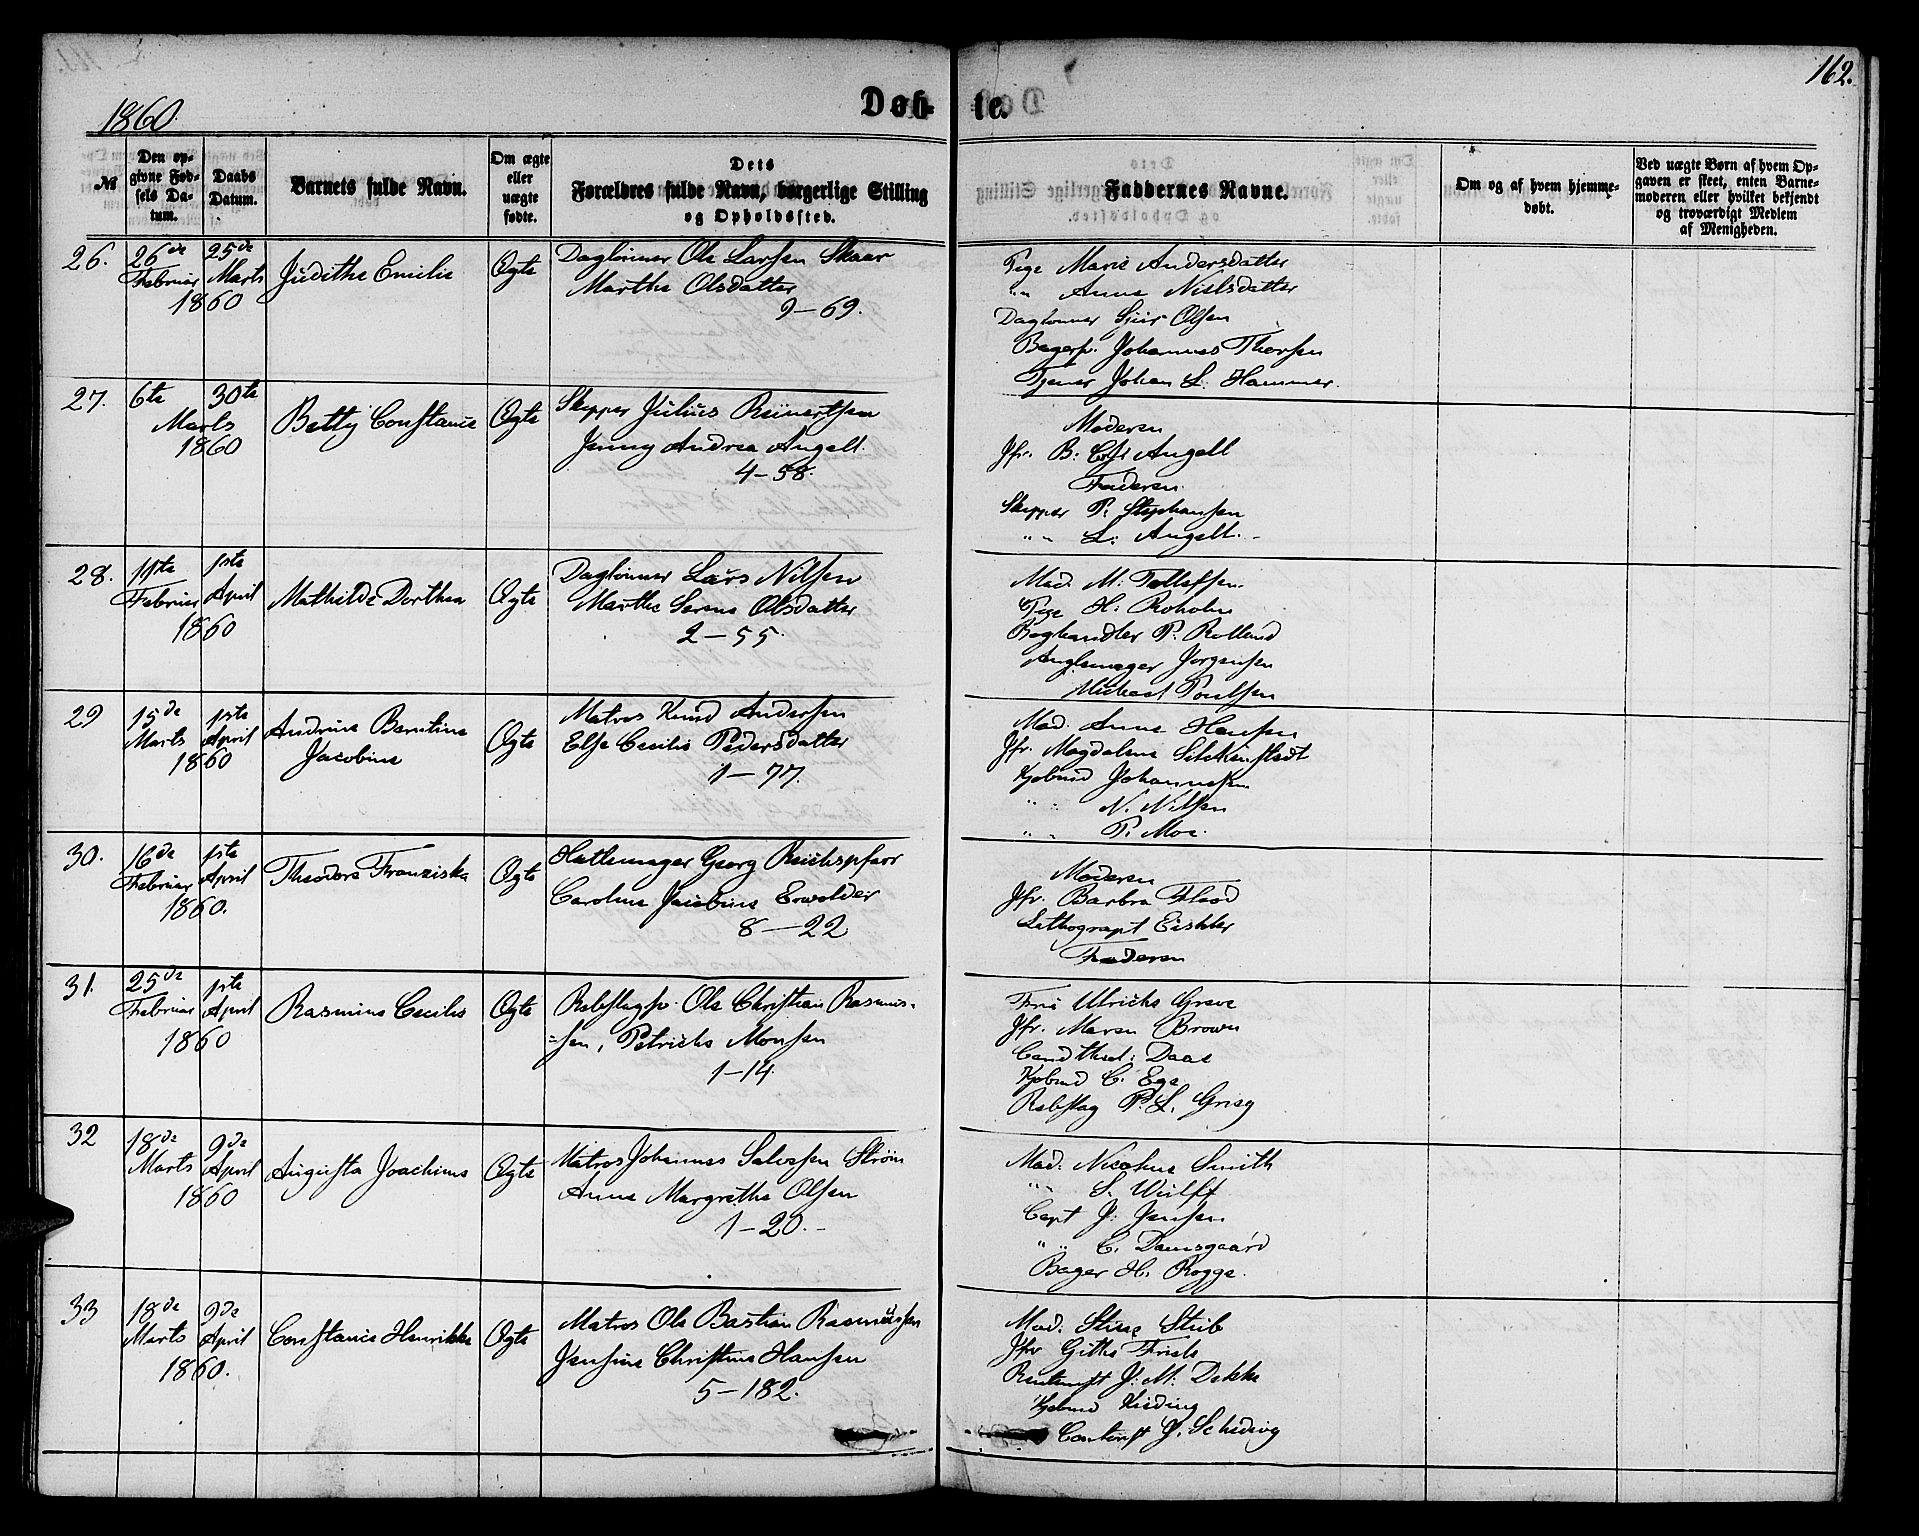 162.
1860
Døb- te.
№
Den opgivne Fødsels Datum.
Daabs Datum.
Barnets fulde Navn.
Om ægte eller uægte fødte.
Dets Forældres fulde Navn, borgerlige Stilling og Opholdssted.
Faddernes Navne.
Om og af hvem hjemmedøbt.
Ved uægte Børn af hvem Opgaven er skeet, enten Barnemoderen eller hvilket bekjendt og troværdigt Medlem af Menigheden.
26. 26de Februar 25de Marts 1860
Judithe Emilie
Ægte
Daglønner Ole Larsen Skaar
Marthe Olsdatter
9-69.
Pige Marie Andersdatter
" Anne Nielsdatter
Daglønner Sjur Olsen
Bagersv. Johannes Thorsen
Tjener Johan L. Hammer.
27. 6te 30te Marts 1860
Betty Constance
Ægte
Skipper Julius Reinertsen
Jenny Andrea Angell.
4-58.
Moderen
Jfr. B: Angell
Faderen
Skipper P. Stephansen
" L: Angell.
28. 11te Februar 1ste April 1860
Mathilde Dorthea
Ægte
Daglønner Lars Nilsen
Marthe Serene Olsdatter
2-55.
Mad. M: Tollefsen.
Pige H: Roholm
Boghandler P. Rolland
Jørgensen
Michael Poulsen
29 15de Marts 1ste April 1860
Andrine Berntine
Jacobine
Ægte
Matros Knud Andersen
Else Cecilie Pedersdatter
1-77.
Mad. Anne Hansen
Jfr. Magdalene
Kjøbmd Johannesen
" N. Nilsen
" P. Moe.
30. 16de Februar 1ste April 1860.
Theodora Franziska
Ægte
Hattemager Georg Reichspfarr
Caroline Jacobine
8-22
Moderen
Jfr. Barbra Flood
Lithograpt
Faderen
31. 25de Februar 1ste April 1860
Rasmine Cecilie
Ægte
Rebslagsv. Ole Christian Rasmus-
-sen, Petriche Monsen
1-14.
Frü Ulriche Greve
Jfr. Maren Brown
Cand theol: Daae
Kjøbmd C. Ege
Rebslag P. L. Grieg
32 18de Marts 9de April 1860
Augusta Joachime
Ægte
Matros Johannes Salvesen Strøm
Anne Margrethe Olsen
1-20.
Mad. Nicoline Smith
" S. Wulff
Capt J: Jensen
" C. Damsgaard
Bager H. Rogge.
33 18de Marts 9de April 1860.
Constance Henrikke
Ægte
Matros Ole Bastian Rasmussen
Jensine Christine Hansen
5-182.
Mad. Stine Stub
Jfr Githe Friele
J: M: Dekke
Kjøbmd Kieding
J. Schedivy